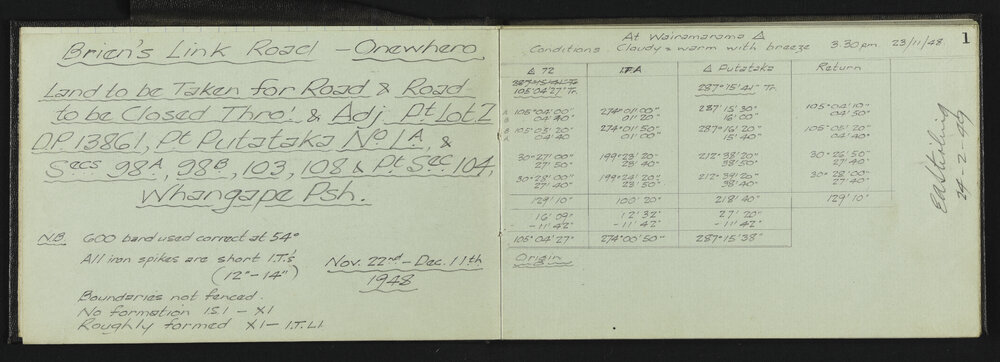 Brien's Link Road - Onewhero
Land to be Taken for Road & Road
to be Closed Thro' & Adj. Pt Lot 2
D.P. 13861, Pt Putataka No 1A, &
Secs 98A, 98B, 103, 108 & Pt Sec 104,
Whangape Psh.
N.B. 600 band used correct at 54°
All iron spikes are short I.T.s
(12"-14")
Nov. 22nd - Dec. 11th
1948
Boundaries not fenced.
No formation IS.I - XI
Roughly formed XI - I.T. LI
1
At Wairamarama △
Conditions. Cloudy & warm with breeze 3.30pm 23/11/48
△ 72 I.T.A △ Putataka Return
105°04'27" Tr. 287°15'41" Tr.
A 105°04'00" 274°01'00" 287°15'30" 105°04'10"
B 04'40" 01'20" 16'00" 04'50"
B 105°05'20" 274°01'50" 287°16'20" 105°05'20"
04'40" 01'00" 15'40" 04'40"
30°27'00" 199°23'20" 212°38'20" 30°26'50"
27'50" 23'40" 38'50" 27'40"
30°28'00" 199°24'20" 212°39'20" 30°28'00"
27'40" 23'50" 38'40" 27'40"
129'10" 100'20" 218'40" 129'10"
16'09" 12'32" 27'20"
-11'42" -11'42" -11'42"
105°04'27" 274°00'50" 287°15'38"
Origin
24-2-49